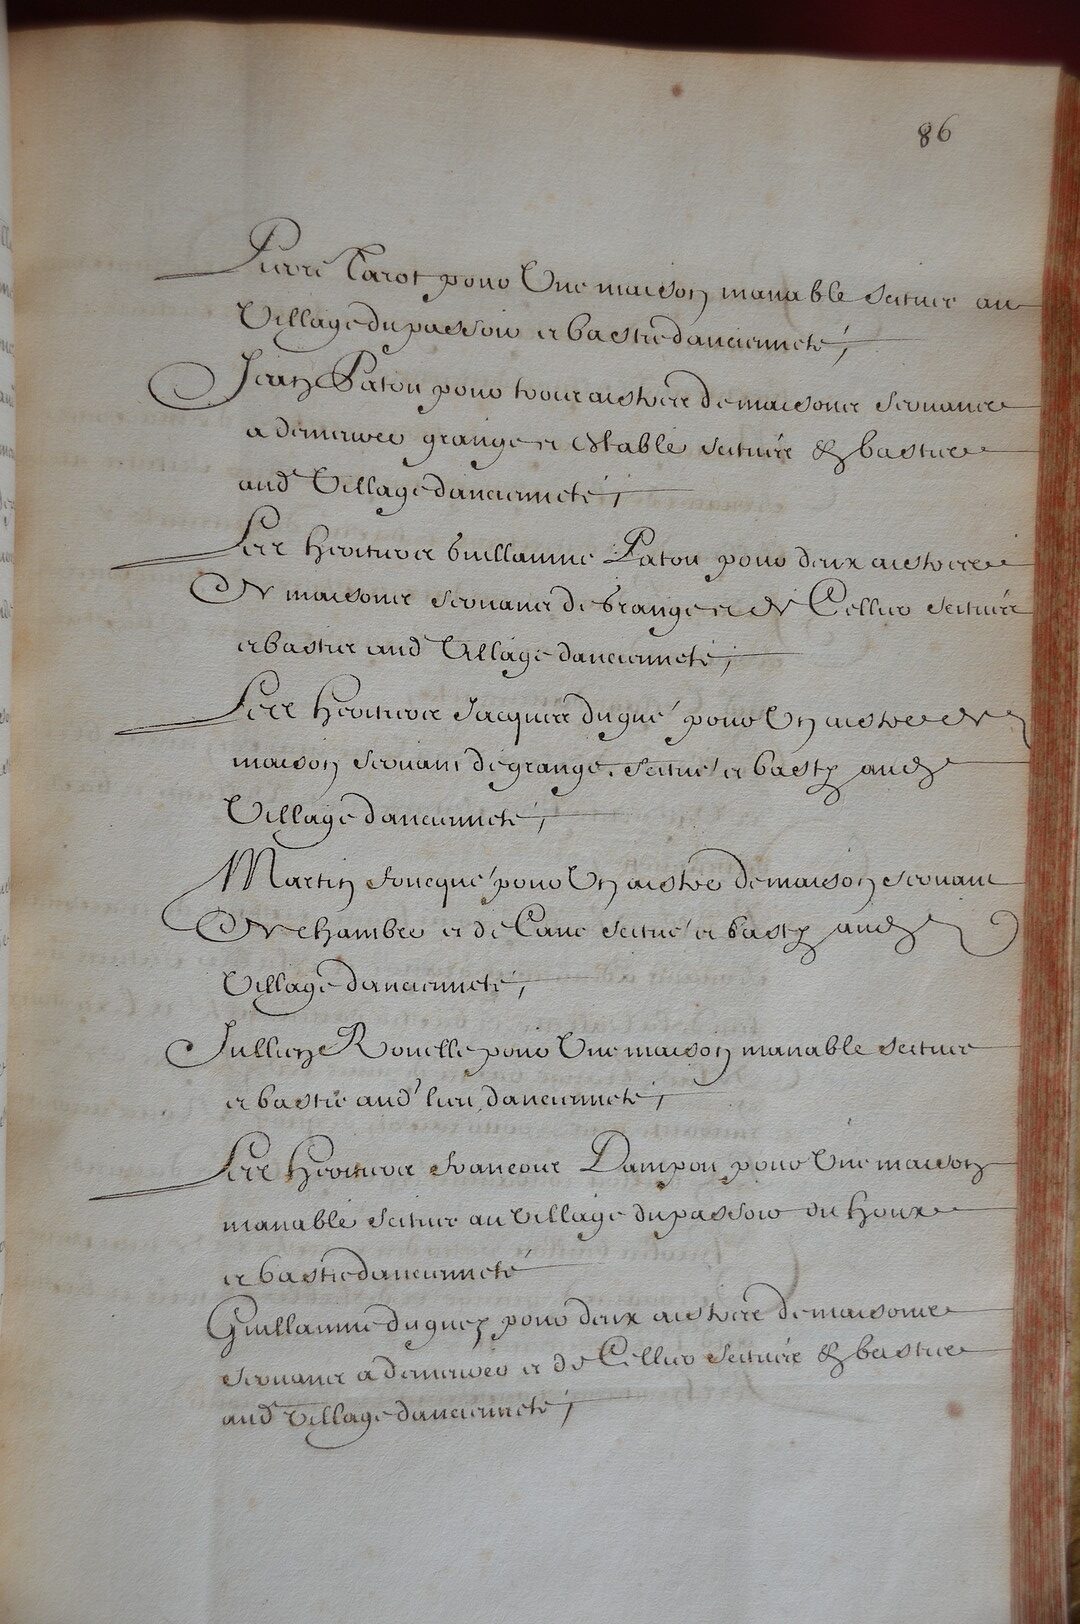 86
Pierre Carot pour Une maison manable scituée au
Village du passoir et bastie d'ancienneté;
Jean Paton pour trois aistres de maisons servans
a demeurer grange et estable scitués & bastis
aud Village d'ancienneté;
Les heritiers Guillaume Paton pour deux aistres
de maisons servans de Grange et de Cellier scitués
et bastis aud Village d'ancienneté;
Les heritiers Jacques dugué pour Un aistre de
maison servant de grange, scitué et basty aud
Village d'ancienneté;
Martin foucqué pour Un aistre de maison servant
de chambre et de Cave scitué et basty aud
Village d'ancienneté;
Jullien Rouelle pour Une maison manable scituée
et bastie aud' lieu d'ancienneté;
Les heritiers francois Dampon pour Une maison
manable scituée au Village du passoir du houx
et bastie d'ancienneté
Guillaume duguey pour deux aistres de maisons
servans a demeurer et de Cellier scitués & bastis
aud Village d'ancienneté;